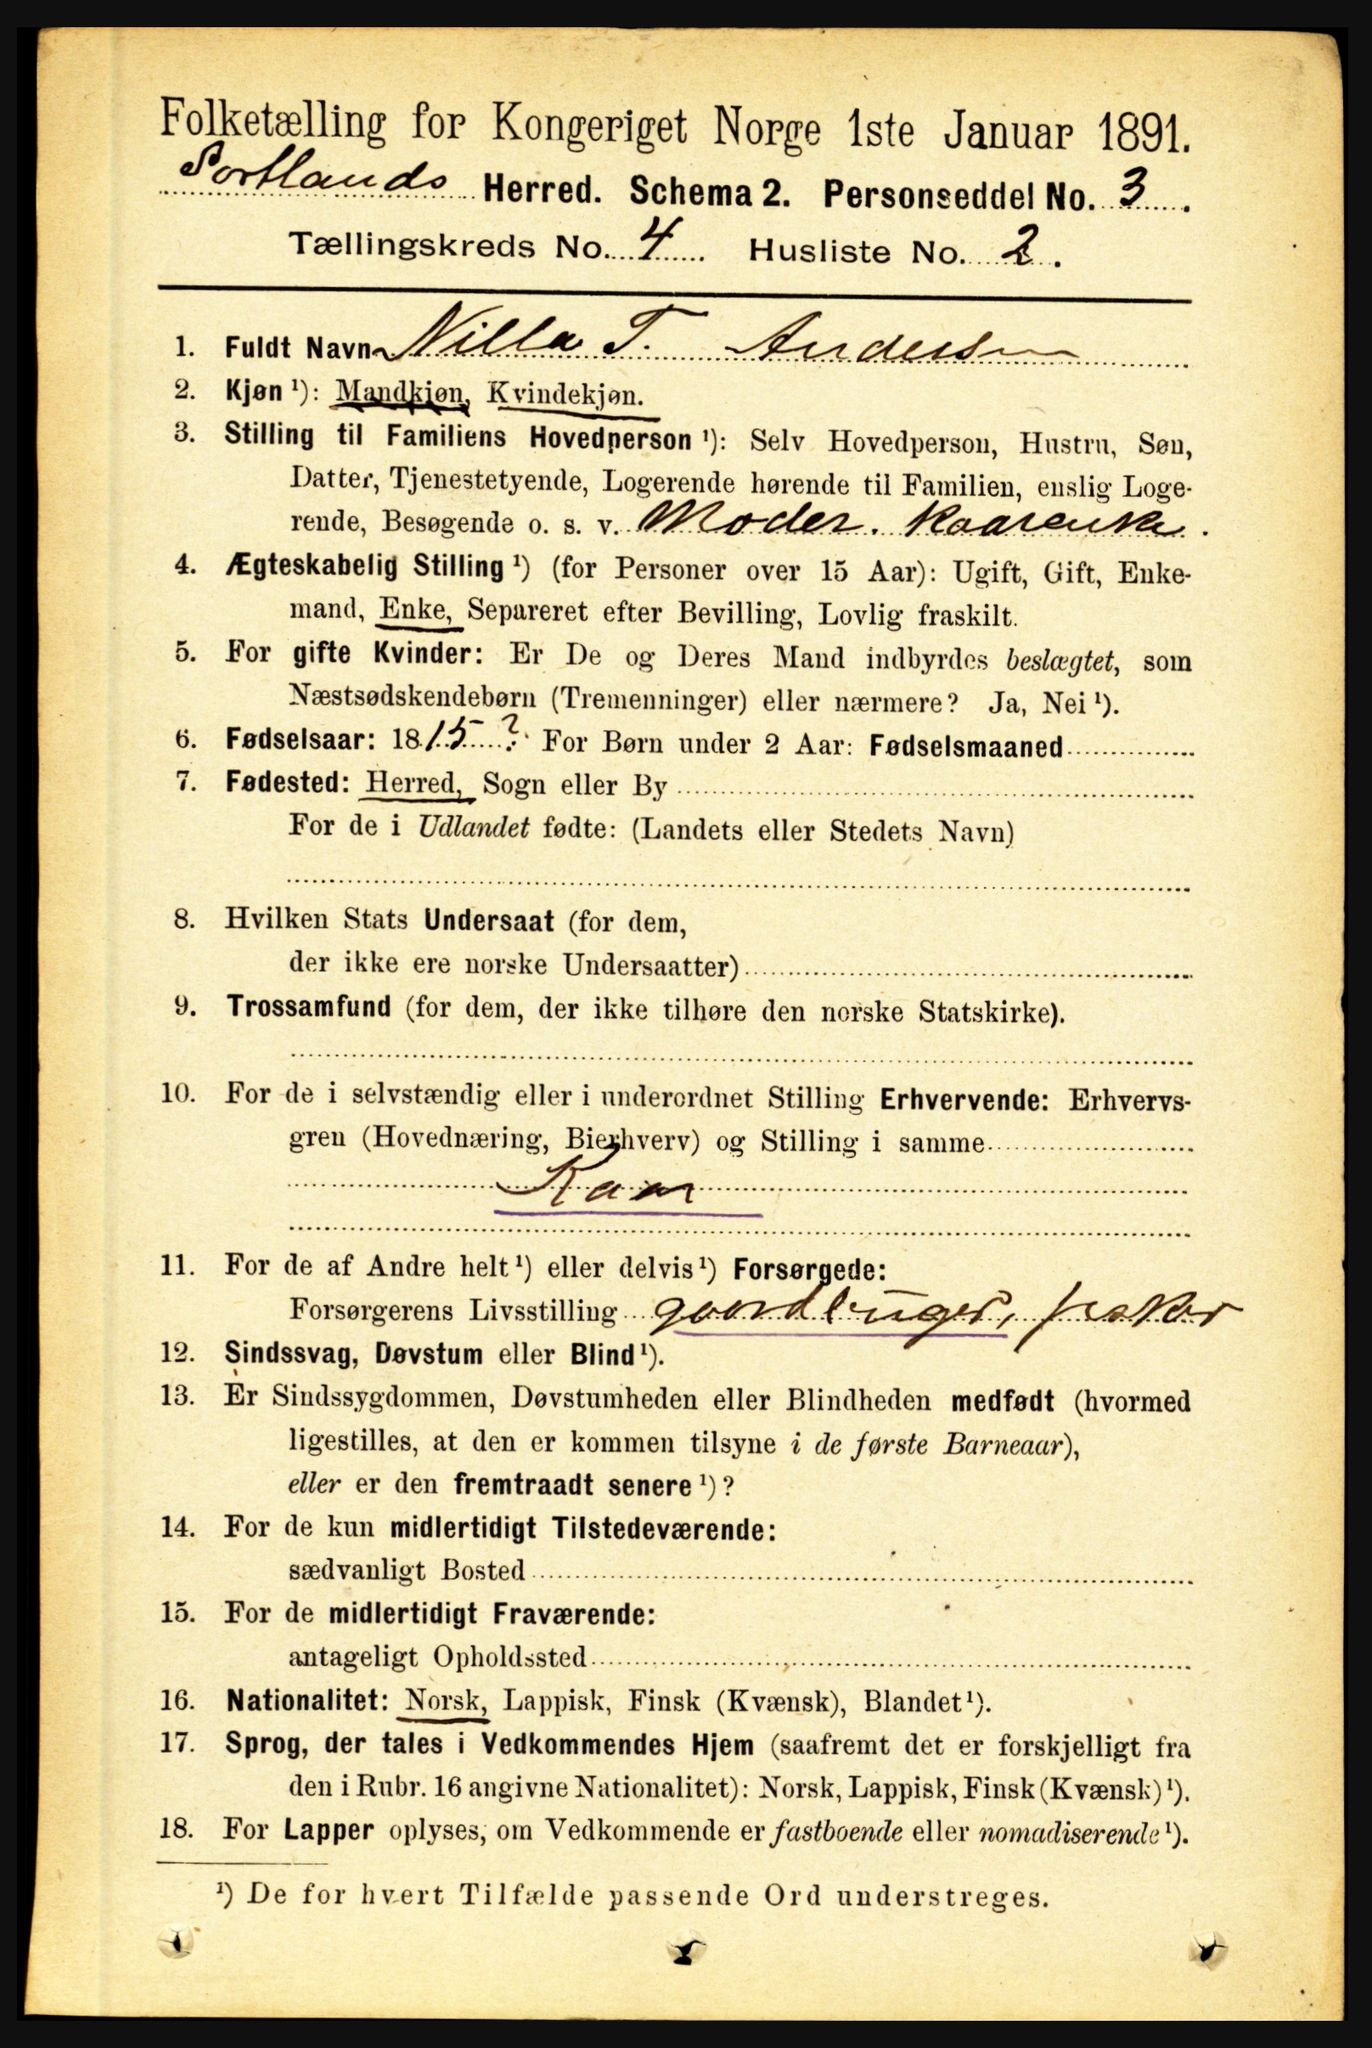 Folketælling for Kongeriget Norge 1ste Januar 1891.
Sortlands Herred. Schema 2. Personseddel No. 3.
Tællingskreds No. 4 Husliste No. 2.
1. Fuldt Navn Nilla T. Andersen
2. Kjøn ¹): Mandkjøn, Kvindekjøn.
3. Stilling til Familiens Hovedperson ¹): Selv Hovedperson, Hustru, Søn,
Datter, Tjenestetyende, Logerende hørende til Familien, enslig Loge-
rende, Besøgende o. s. v. Moder. Kaarenke.
4. Ægteskabelig Stilling ¹) (for Personer over 15 Aar): Ugift, Gift, Enke-
mand, Enke, Separeret efter Bevilling, Lovlig fraskilt.
5. For gifte Kvinder: Er De og Deres Mand indbyrdes beslægtet, som
Næstsødskendebørn (Tremenninger) eller nærmere? Ja, Nei ¹).
6. Fødselsaar: 1815? For Børn under 2 Aar: Fødselsmaaned
7. Fødested: Herred, Sogn eller By
For de i Udlandet fødte: (Landets eller Stedets Navn)
8. Hvilken Stats Undersaat (for dem,
der ikke ere norske Undersaatter)
9. Trossamfund (for dem, der ikke tilhøre den norske Statskirke).
10. For de i selvstændig eller i underordnet Stilling Erhvervende: Erhvervs-
gren (Hovednæring, Bierhverv) og Stilling i samme
Kaar
11. For de af Andre helt ¹) eller delvis ¹) Forsørgede:
Forsørgerens Livsstilling gaardbruger, fisker
12. Sindssvag, Døvstum eller Blind ¹).
13. Er Sindssygdommen, Døvstumheden eller Blindheden medfødt (hvormed
ligestilles, at den er kommen tilsyne i de første Barneaar),
eller er den fremtraadt senere ¹)?
14. For de kun midlertidigt Tilstedeværende:
sædvanligt Bosted
15. For de midlertidigt Fraværende:
antageligt Opholdssted
16. Nationalitet: Norsk, Lappisk, Finsk (Kvænsk), Blandet ¹).
17. Sprog, der tales i Vedkommendes Hjem (saafremt det er forskjelligt fra
den i Rubr. 16 angivne Nationalitet): Norsk, Lappisk, Finsk (Kvænsk) ¹).
18. For Lapper oplyses, om Vedkommende er fastboende eller nomadiserende ¹).
¹) De for hvert Tilfælde passende Ord understreges.